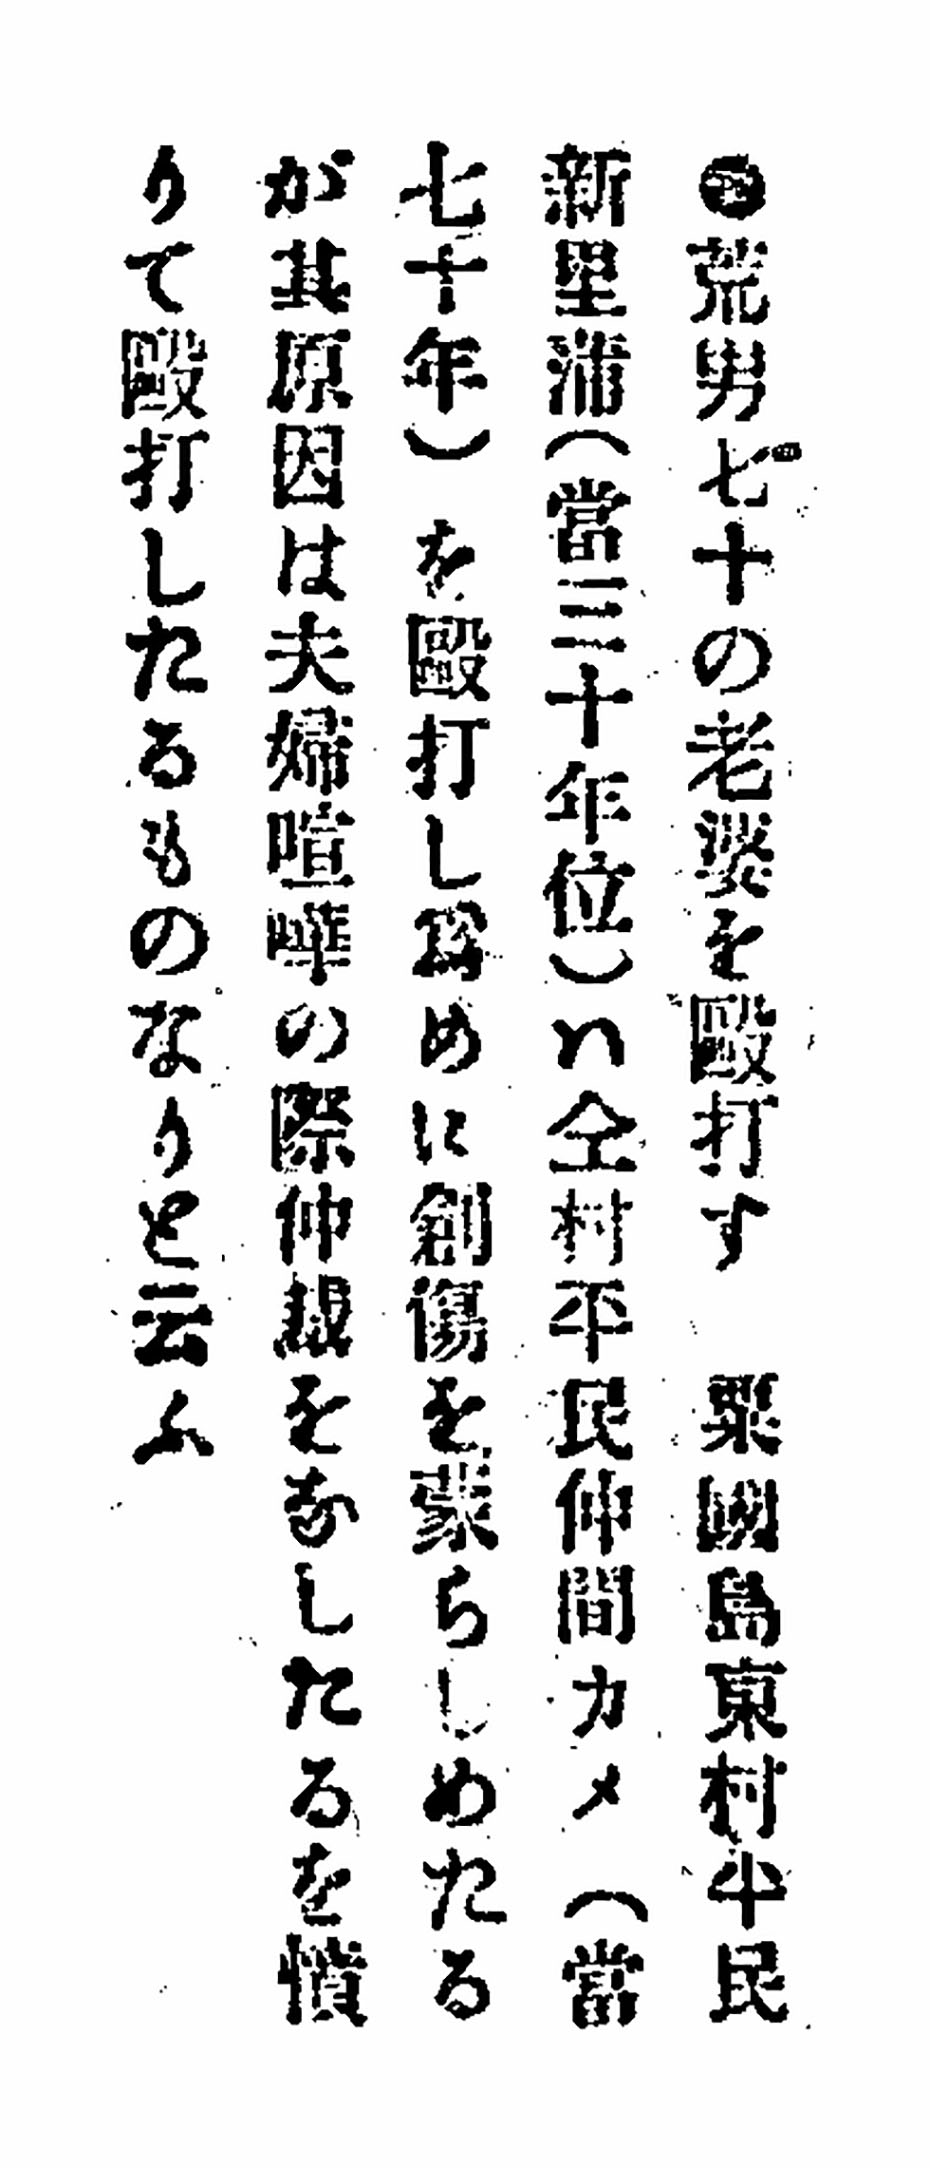 ◉荒男七十の老婆を毆打す　粟國島東村平民
新里蒲（當三十年位）ハ仝村平民仲間カメ（當
七十年）を毆打し爲めに創傷を蒙らしめたる
が其原因は夫婦喧嘩の際仲裁をなしたるを憤
りて毆打したるものなりと云ふ